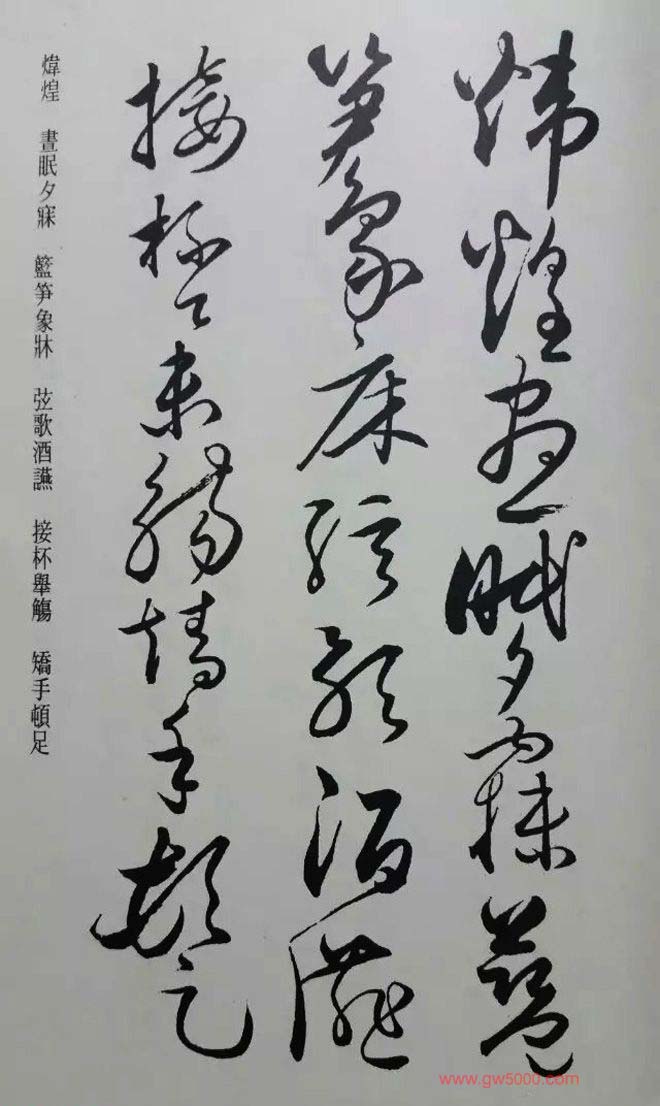 煒煌晝眠夕寐籃
笋象床弦歌酒讌
接杯舉觴矯手頓足
煒煌 晝眠夕寐 籃笋象牀 弦歌酒讌 接杯舉觴 矯手頓足
www.gw5000.com